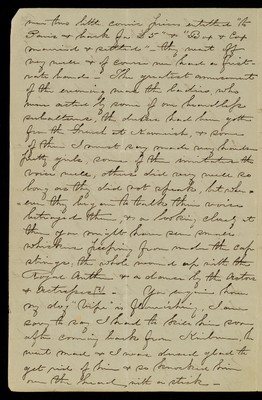 were two little comic pieces entitled "To
Paris & back for £5" & "Box & Cox
married & settled" - they went off
very nice & of course we had a first-
rate band - The greatest amusement
of the evening was the ladies, who
were acted by some of our
subalterns, the dresses had been got
from the French at Kamiesh, & some
of them I must say made very handsome
pretty girls, some of them imitated the
voice nice, others did very nice so
long as they did not speak, but when
ever they began to talk their voices
betrayed them, & on looking closely at
them you might have seen small
whiskers peeping from under the cap
strings, the whole wound up with the
National Anthem & a dance by the actors
& Actresses (?!) - You enquire how
my dog "Vip" is flourishing, I am
sorry to say I had to kill him soon
after coming back from Kinburn, he
went mad & I was almost glad to
get rid of him & so knocked him
over the head with a stick -